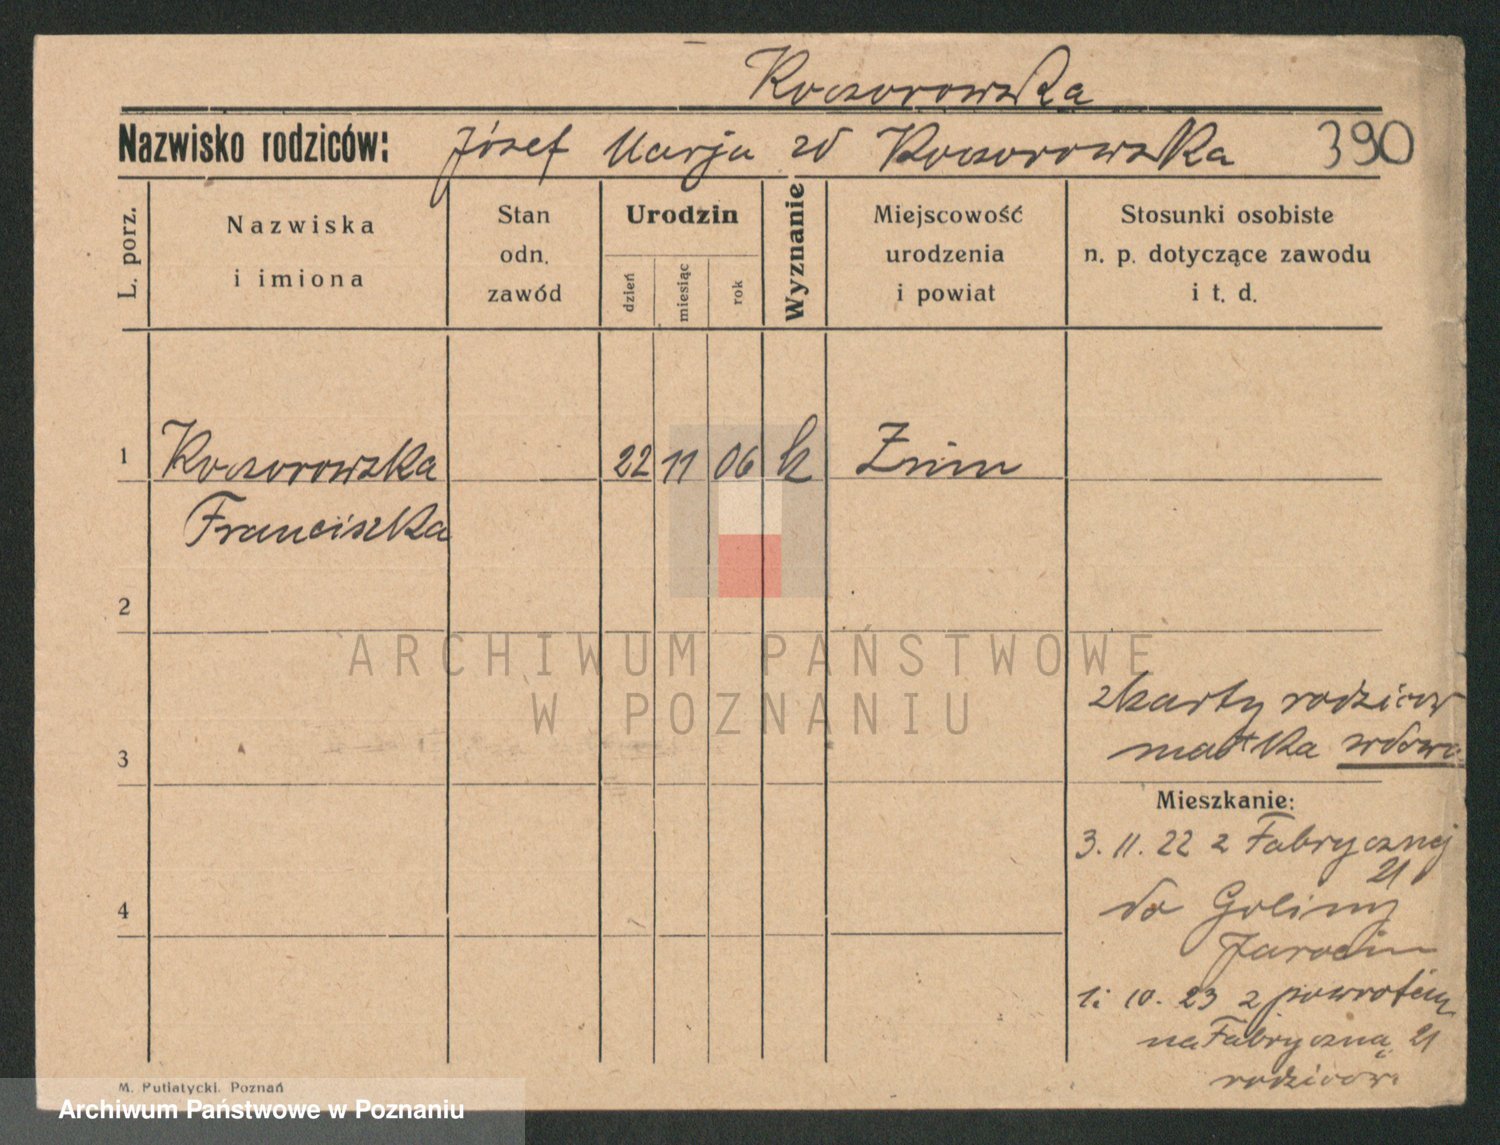 Koczorowska
Nazwisko rodziców: Józef Marja zd Koczorowska 390
L. porz.
Nazwiska
i imiona
Stan
odn.
zawód
Urodzin
dzień
miesiąc
rok
Wyznanie
Miejscowość
urodzenia
i powiat
Stosunki osobiste
n. p. dotyczące zawodu
i t. d.
1 Koczorowska 22 11 06 k Żnin
Franciszka
2
ARCHIWUM PAŃSTWOWE
W POZNANIU
z karty rodziców
3 matka wdowa
Mieszkanie:
3. 11. 22 z Fabrycznej
21
4 do Goliny
Jarocin
1. 10. 23 z powrotem
na Fabryczną 21
rodziców.
M. Putiatycki. Poznań
Archiwum Państwowe w Poznaniu